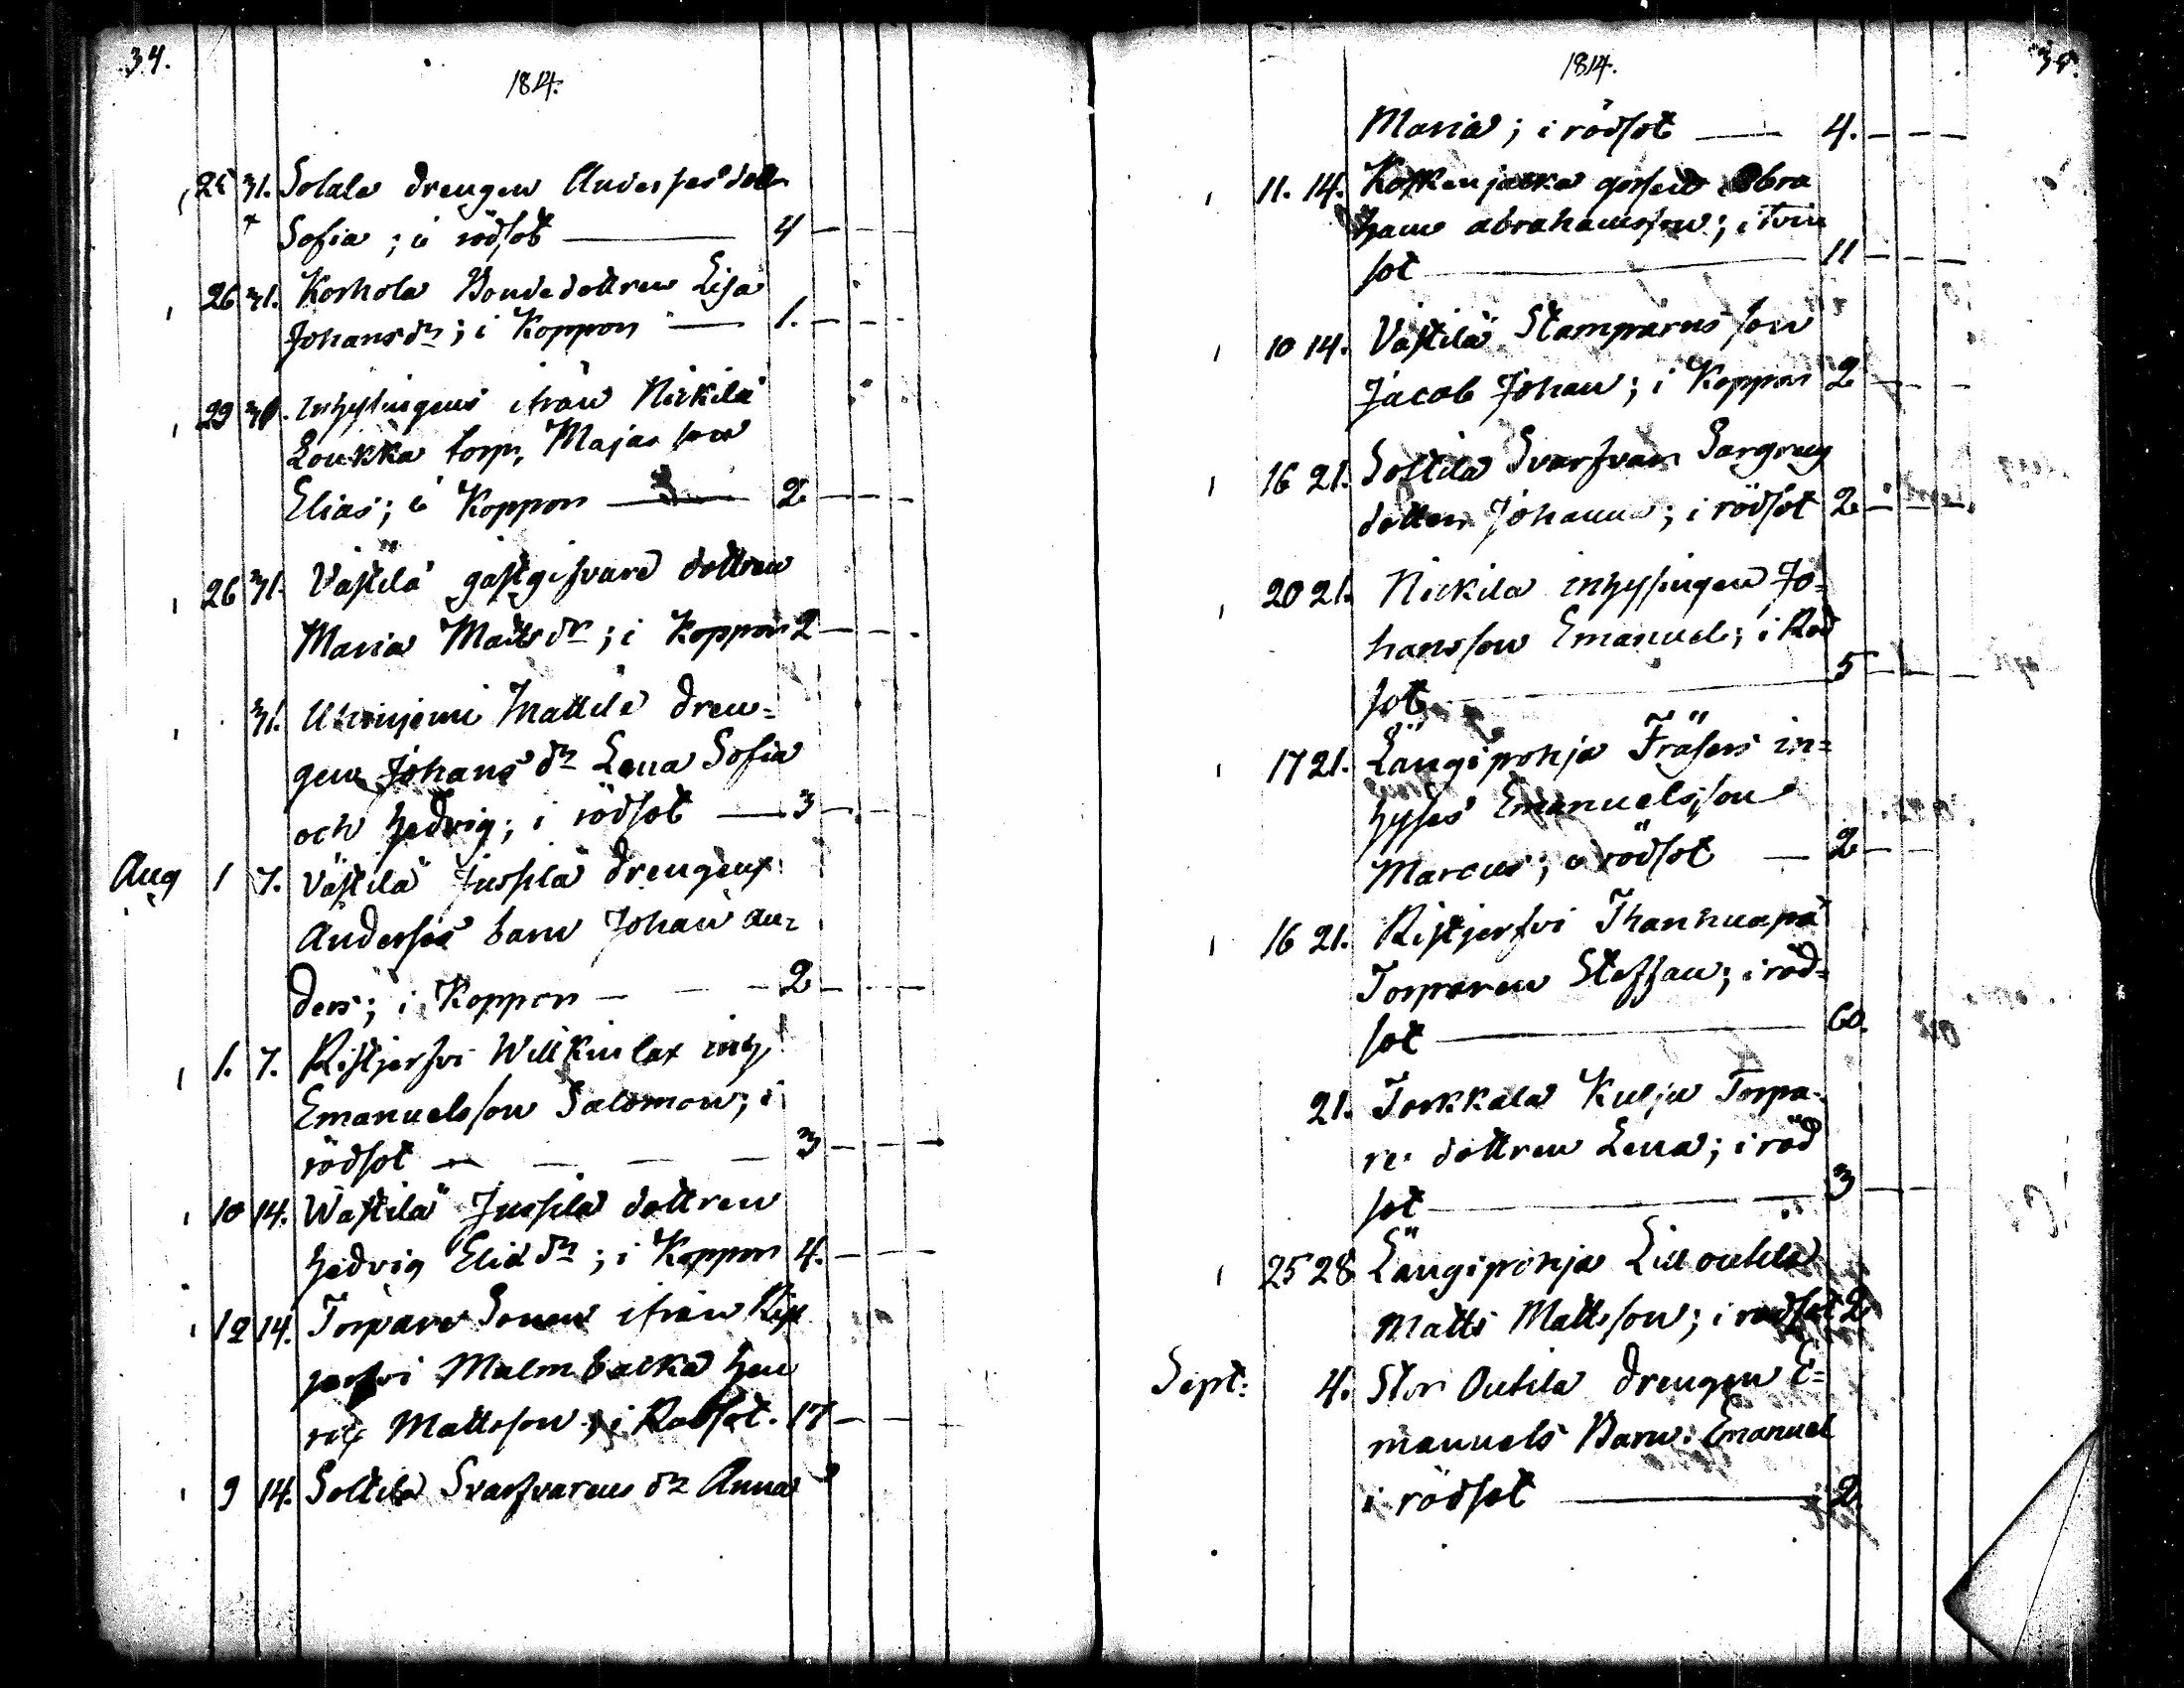 34.
1814.
25 31. Solala drengen Anderses dottr
Sofia; i rödsot — 4 — — —
26 31. Korhola Bondedottren Lisa
Johansdr; i Koppon — 1. — — —
29 31. inhysingens ifrån Nickilä
Loukka torp, Majas son
Elias; i Koppon — 2 — — —
26 31. Västilä gästgifvare dottren
Maria Mattsdr; i Koppon 2 — — —
31. Mattila dren=
gen Johans dr Lena Sofia
och Hedvig; i rödsot — 3 — — —
Aug 1 7. Västilä Jussila drengens
Anderses barn Johan An=
ders; i Koppon — — — 2 — — —
1. 7. Ristjerfvi Willkinlax inh.
Emanuelsson Salomon; i
rödsot — — — — 3 — — —
10 14. Wästilä Jussila dottren
Hedvig Eliædr; i Koppon 4. — — —
12 14. Torpare Sonen ifrån Rist
jerfvi Malmbacka Hen
ric Mattsson; i Rödsot. 17 — — —
9 14. Soltila Svarfvarens dr Anna
35.
1814.
Maria; i rödsot — 4. — — —
11. 14. Koskenjacka gossen Abra
ham Abrahamsson; i tvin
sot — 11 — — —
10 14. Västilä Stamparens son
Jacob Johan; i Koppon 2 — — —
16 21. Soltila Svarfvare
dottren Johanna; i rödsot 2 — — —
20 21. Nickila inhysingen Jo=
hans son Emanuel; i Röd
sot — 5 — — —
17 21. Längipohja Fräsers in=
hyses Emanuels son
Marcus; i rödsot — 2 — —
16 21. Ristjerfvi Ihanhuapä
Torparen Steffan; i röd=
sot — 60.
21. Torkkala Kulju Torpa-
re dottren Lena; i röd
sot — — 3 — — —
25 28 Längipohja Lill outila
Matts Mattsson; i rödsot 2
Sept: 4. Stor Outila drengen E=
manuels Barn: Emanuel
i rödsot — 2.